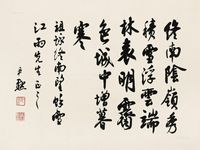 終南陰嶺秀
積雪浮雲端
林表明霽
色城中增暮
寒
祖詠終南望餘雪
江雨先生正之